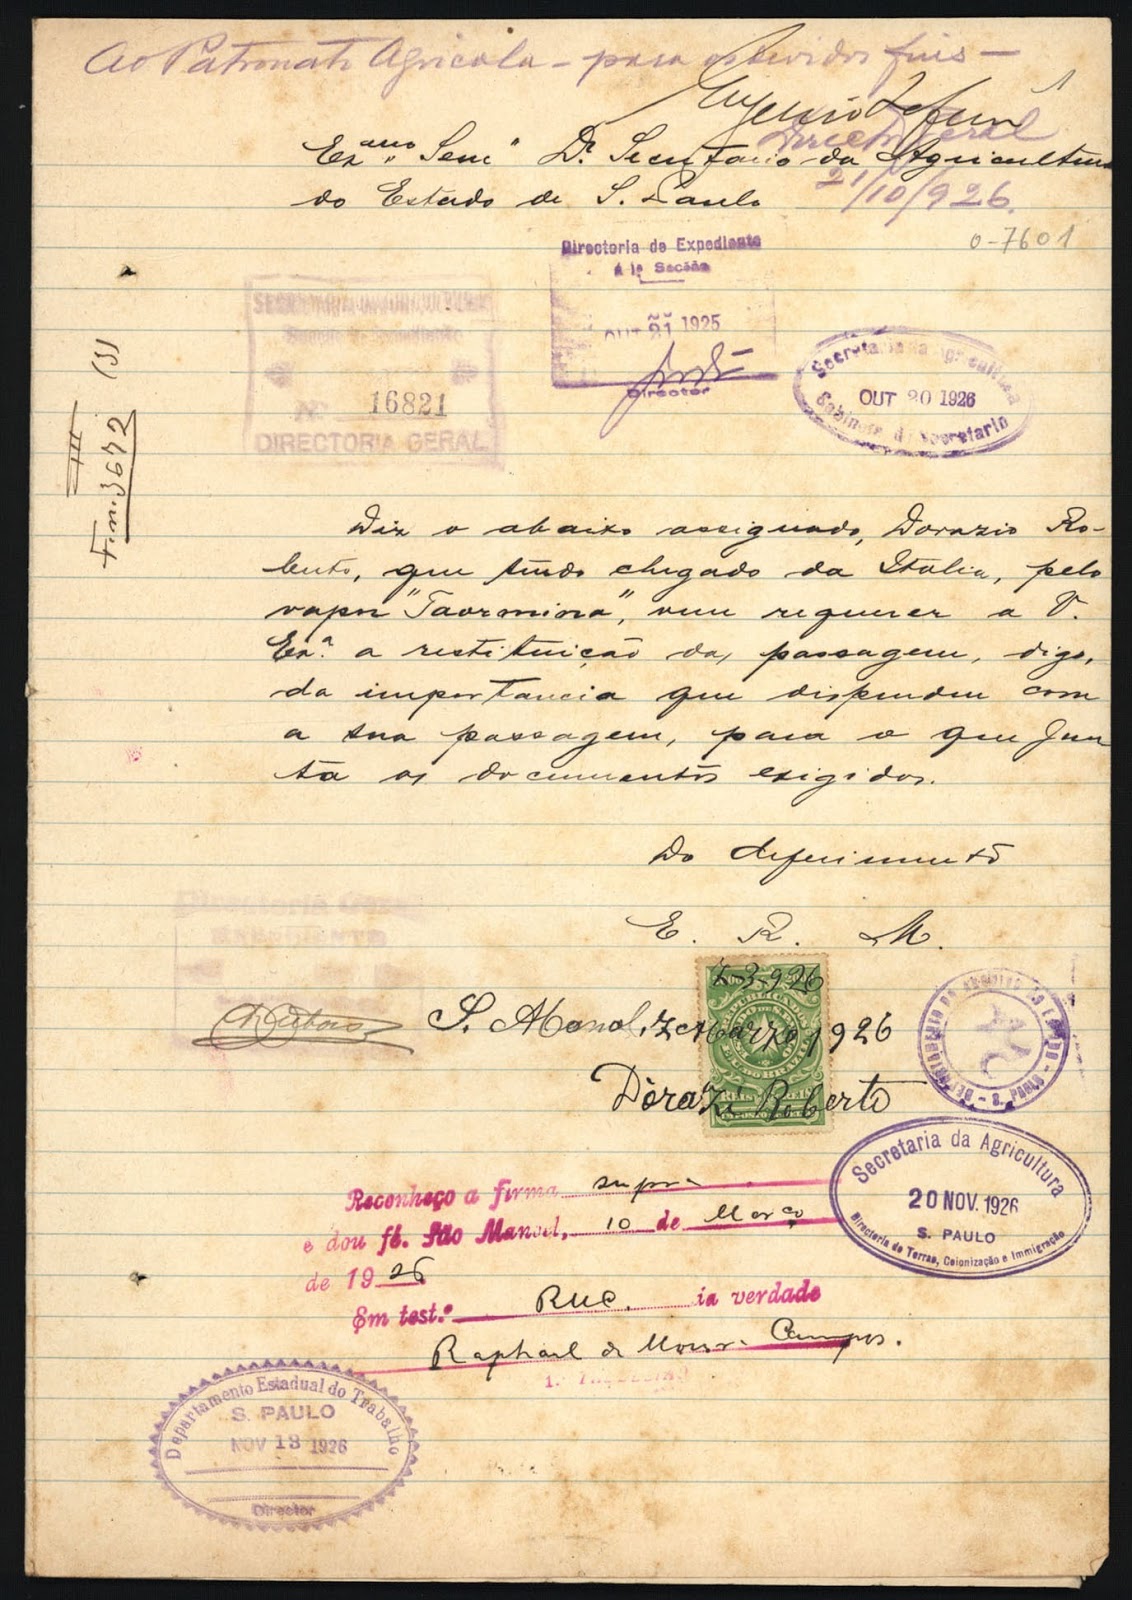 Ao Patronato Agricola - para os devidos fins -
Eugenio
Director Geral
Exmo Snr Dr Secretario da Agricultura
do Estado de S. Paulo
21/10/926.
0-7601
Directoria de Expediente
Á 1ª Secção
OUT 21 1925
Director
Nº 16821
DIRECTORIA GERAL
Secretaria da Agricultura
OUT 20 1926
Gabinete do Secretario
(3)
III
F.n. 3672
Diz o abaixo assignado, Dorazio Ro-
berto, que tendo chegado da Italia, pelo
vapor "Taormina", vem requerer a V.
Exª. a restituição da passagem, digo,
da importancia que dispendeu com
a sua passagem, para o que jun
ta os documentos exigidos.
Do deferimento
E. R. M.
Directoria Geral
EXPEDIENTE
7-3-926
S. Manoel, 7 de Março 1926
Dorazi Roberto
DEPARTAMENTO DO ARCHIVO DO ESTADO - S. PAULO
Secretaria da Agricultura
20 NOV. 1926
S. PAULO
Directoria de Terras, Colonização e Immigração
Reconheço a firma supra
e dou fé. São Manoel, 10 de Março
de 1926
Em test.º RMC. da verdade
Raphael de Moura Campos.
Departamento Estadual do Trabalho
S. PAULO
NOV 13 1926
Director